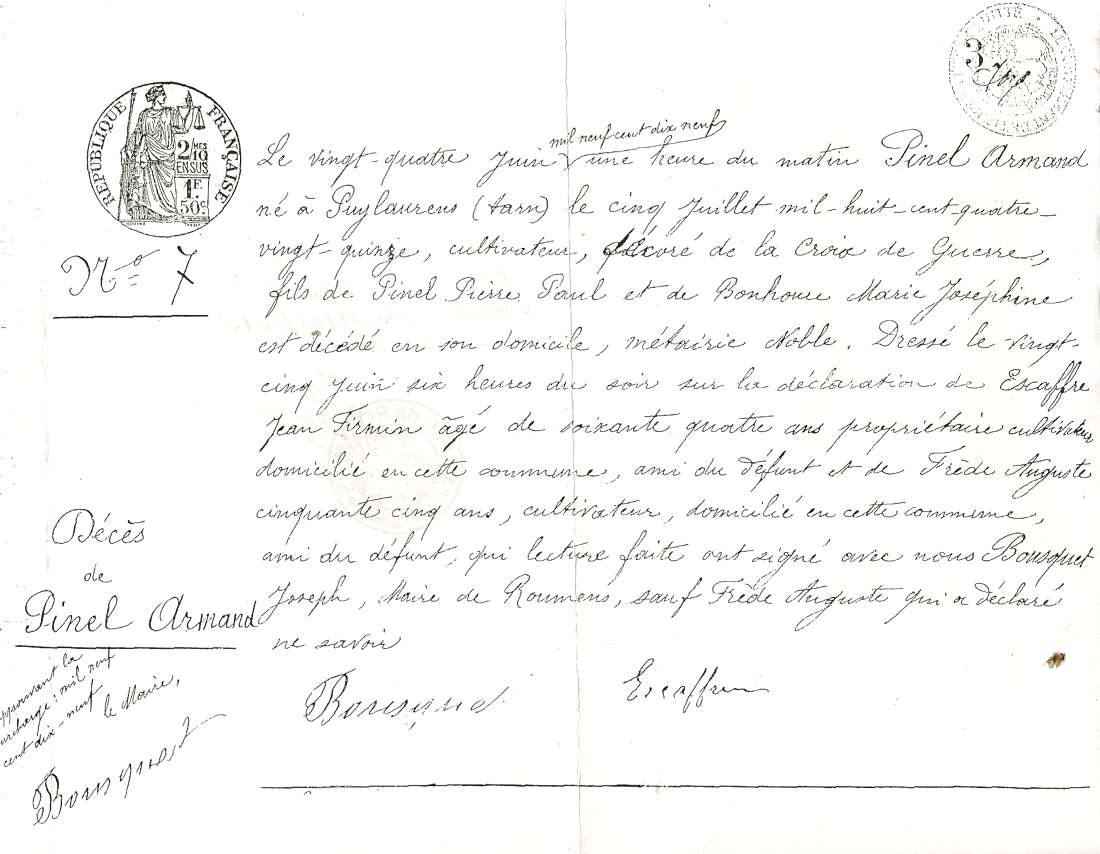 RÉPUBLIQUE FRANÇAISE
2/10 MES
EN SUS
1F.
50c.
3
N° 7
mil neuf cent dix neuf
Le vingt-quatre Juin une heure du matin Pinel Armand
né à Puylaurens (tarn) le cinq Juillet mil-huit-cent-quatre-
vingt-quinze, cultivateur, décoré de la Croix de Guerre,
fils de Pinel Pierre Paul et de Bonhoure Marie Joséphine
est décédé en son domicile, métairie Noble. Dressé le vingt-
cinq Juin six heures du soir sur la déclaration de Escaffre
Jean Firmin âgé de soixante quatre ans propriétaire cultivateur
domicilié en cette commune, ami du défunt et de Frède Auguste
cinquante cinq ans, cultivateur, domicilié en cette commune,
ami du défunt, qui lecture faite ont signé avec nous Bousquet
Joseph, Maire de Roumens, sauf Frède Auguste qui a déclaré
ne savoir
Bousquet
Escaffre
Décès
de
Pinel Armand
approuvant la
surcharge: mil neuf
cent dix-neuf
le Maire,
Bousquet